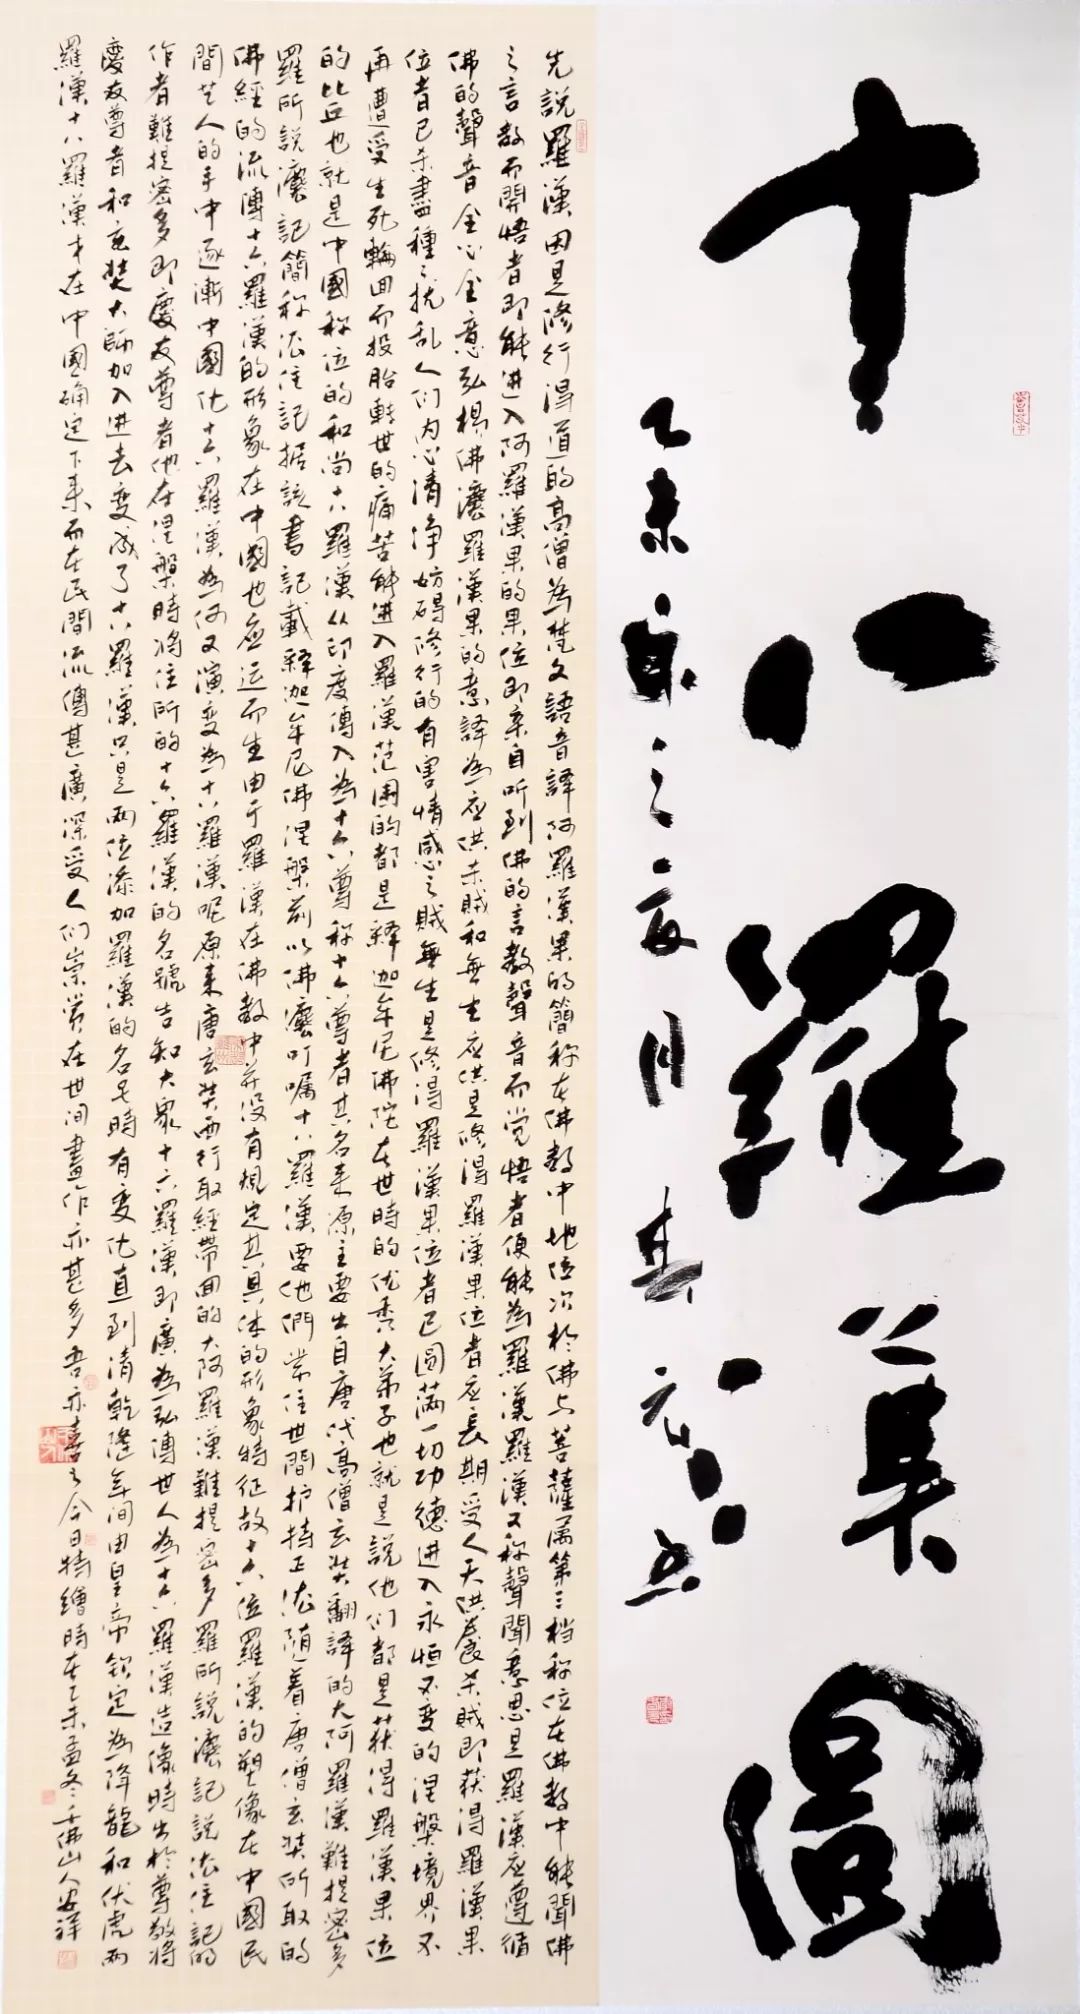 十八羅漢圖
乙未年之夏月
先說羅漢因是修行得道的高僧為梵文語音譯阿羅漢果的簡称在佛教中地位次於佛与菩薩属第三档称位在佛教中能聞佛
之言教而開悟者即能进入阿羅漢果的果位即亲自听到佛的言教聲音而觉悟者便能為羅漢羅漢又称聲聞意思是羅漢应遵循
佛的聲音全心全意弘揚佛灋羅漢果的意譯為应供杀賊和無生应供是修得羅漢果位者应長期受人天供養杀賊即获得羅漢果
位者已杀盡種種扰乱人们内心清净妨碍修行的有害情感之賊無生是修得羅漢果位者已圆满一切功德进入永恒不变的涅槃境界不
再遭受生死輪回而投胎轉世的痛苦能进入羅漢范围的都是釋迦牟尼佛陀在世時的优秀大弟子也就是説他们都是获得羅漢果位
的比丘也就是中國称位的和尚十八羅漢从印度傳入為十六尊称十六尊者其名来源主要出自唐代高僧玄奘翻譯的大阿羅漢難提密多
羅所說灋記簡称法住記据該書記載釋迦牟尼佛涅槃前以佛灋叮嘱十八羅漢要他們常住世間护持正法随着唐僧玄奘所取的
佛經的流傳十六羅漢的形象在中國也应运而生由于羅漢在佛教中并没有規定其具体的形象特征故十六位羅漢的塑像在中國民
間艺人的手中逐漸中國化十六羅漢為何又演变為十八羅漢呢原来唐玄奘西行取經帶回的大阿羅漢難提密多羅所說灋記説法住記的
作者難提密多即慶友尊者他在涅槃時将住所的十六羅漢的名號告知大眾十六羅漢即廣為弘傳世人為十六羅漢造像時出於尊敬将
慶友尊者和玄奘大師加入进去变成了十八羅漢只是两位添加羅漢的名号時有变化直到清乾隆年间由皇帝钦定為降龍和伏虎两
羅漢十八羅漢才在中國确定下来而在民間流傳甚廣深受人们崇赏在世间畫作亦甚多吾亦喜之今日特繪時在乙未孟冬千佛山人安祥